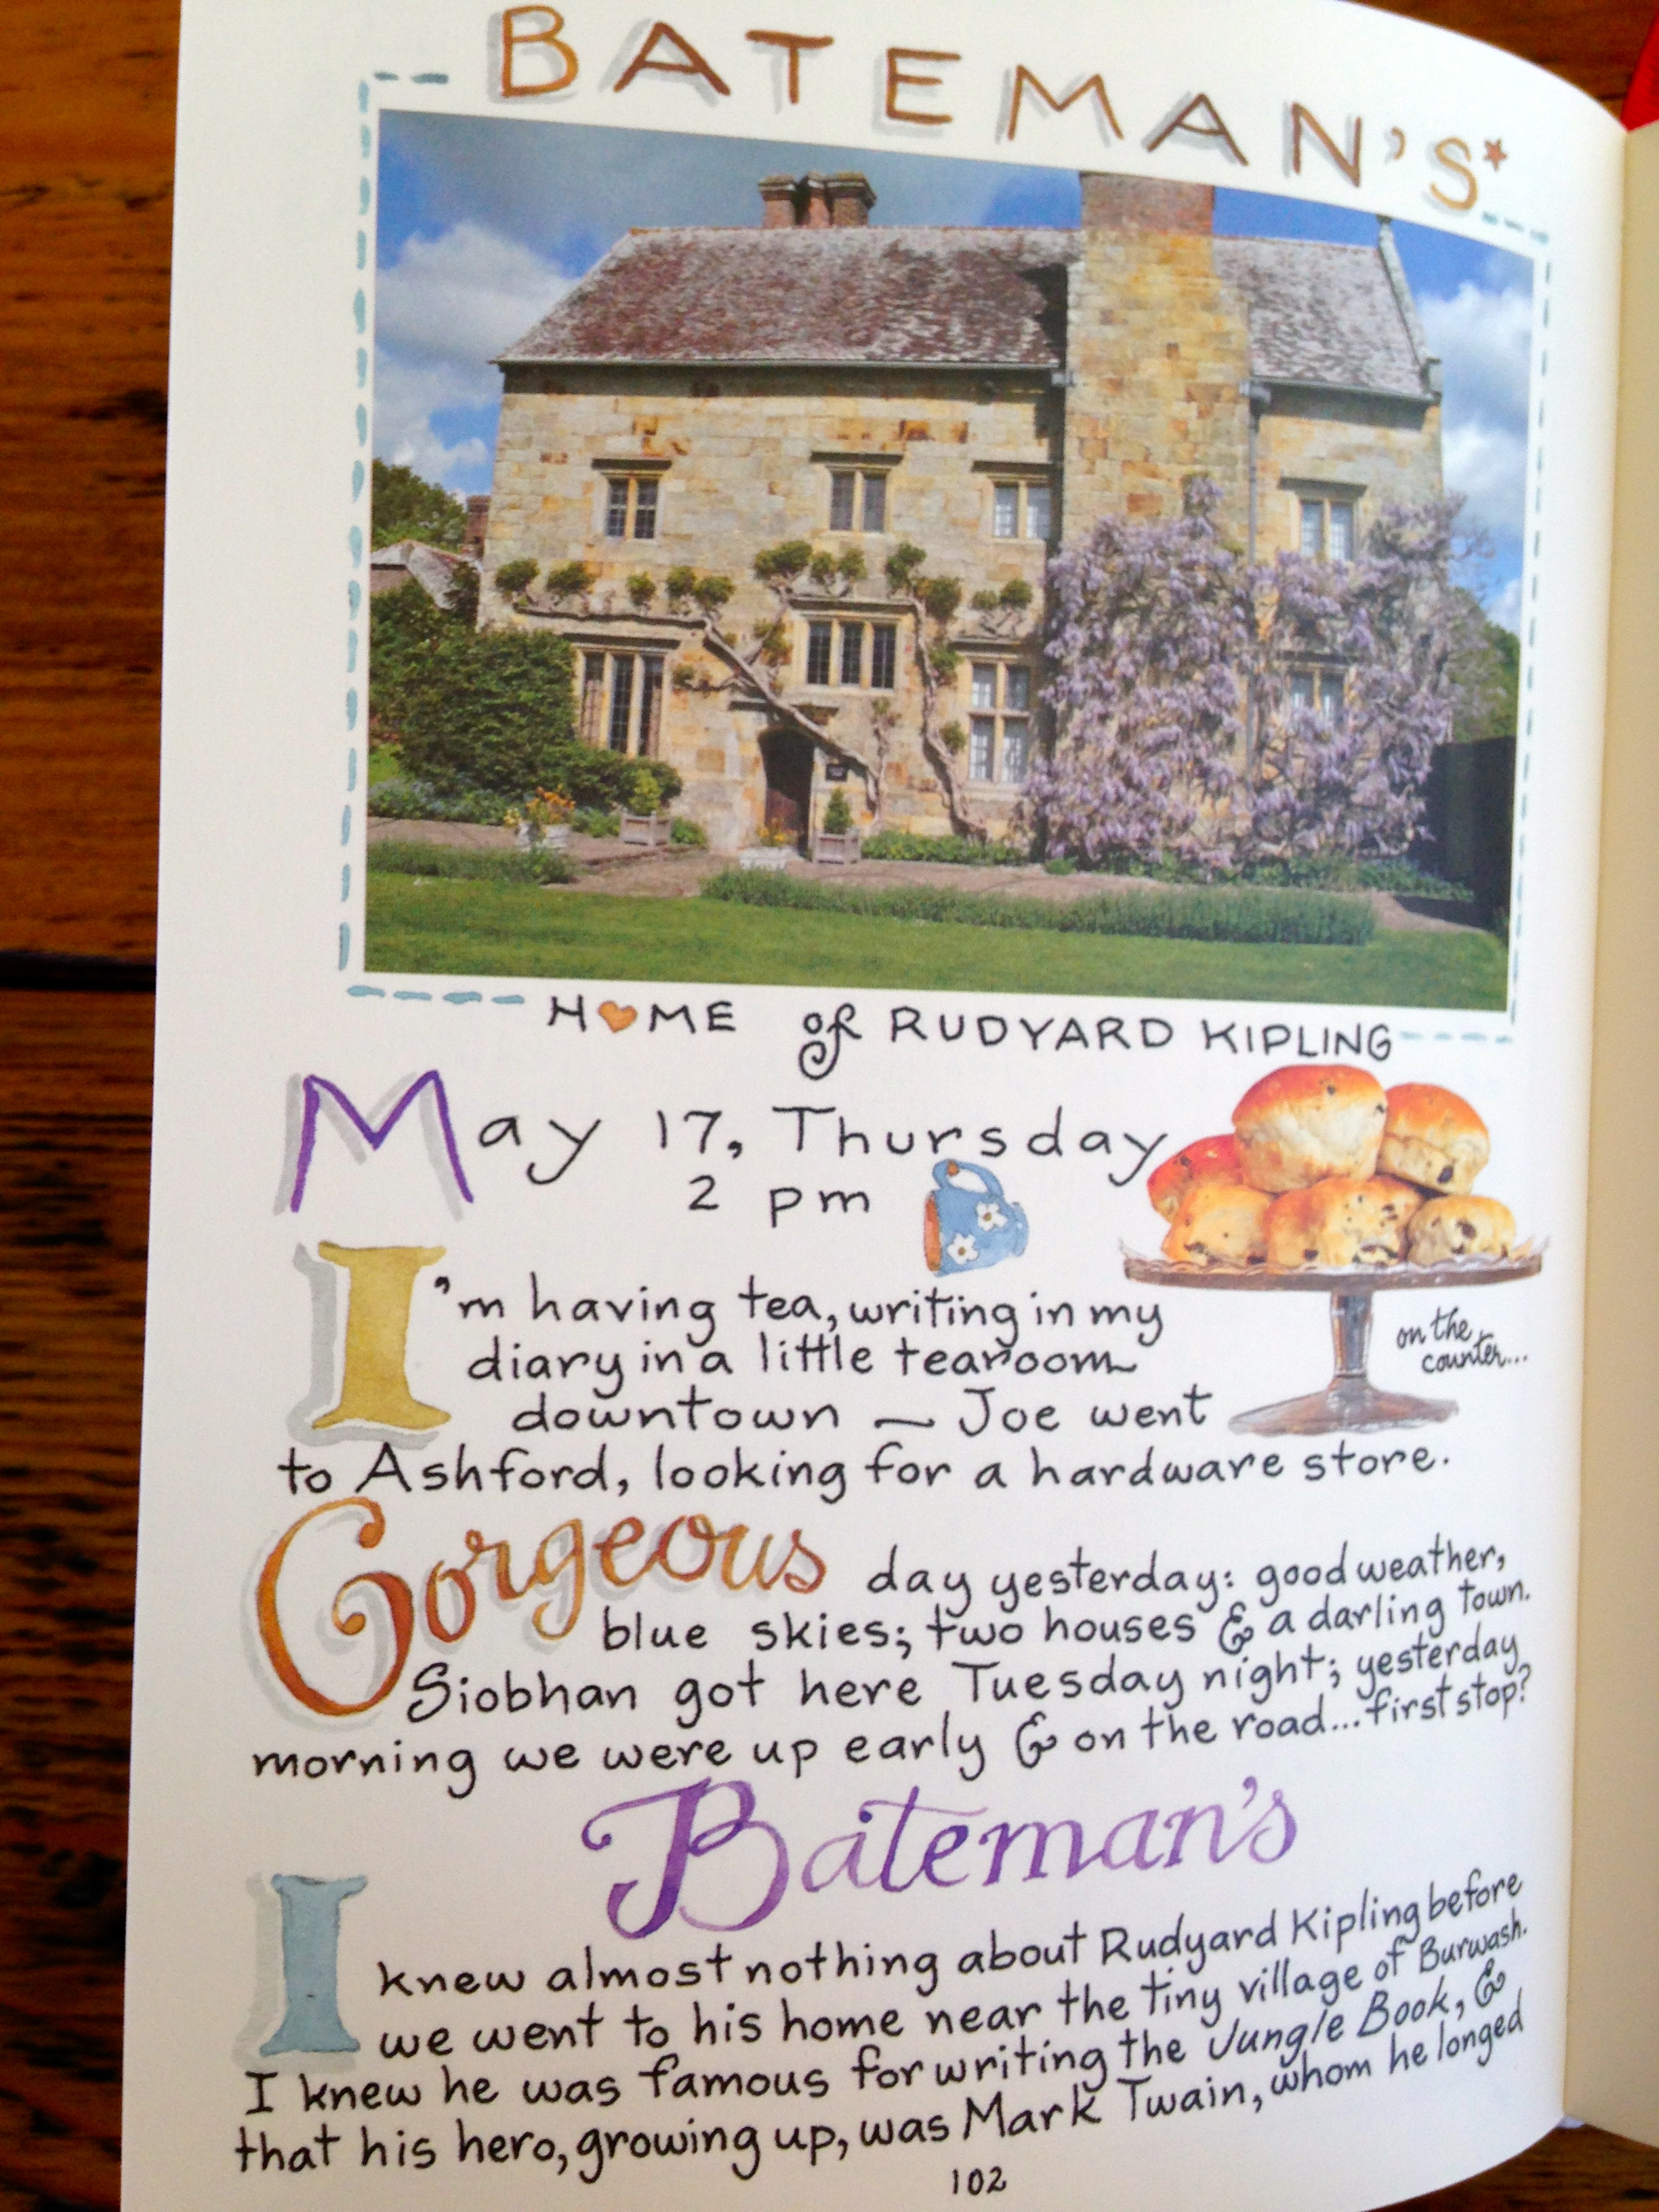 BATEMAN'S*
HOME of RUDYARD KIPLING
May 17, Thursday
2 pm
I'm having tea, writing in my
diary in a little tearoom
on the
counter...
downtown — Joe went
to Ashford, looking for a hardware store.
Gorgeous day yesterday: good weather,
blue skies; two houses & a darling town.
Siobhan got here Tuesday night; yesterday
morning we were up early & on the road...first stop?
Bateman's
I knew almost nothing about Rudyard Kipling before
we went to his home near the tiny village of Burwash.
I knew he was famous for writing the Jungle Book, &
that his hero, growing up, was Mark Twain, whom he longed
102